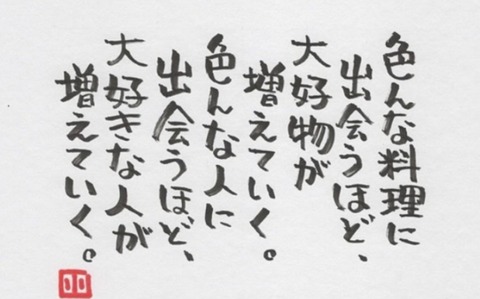 色んな料理に
出会うほど、
大好物が
増えていく。
色んな人に
出会うほど、
大好きな人が
増えていく。